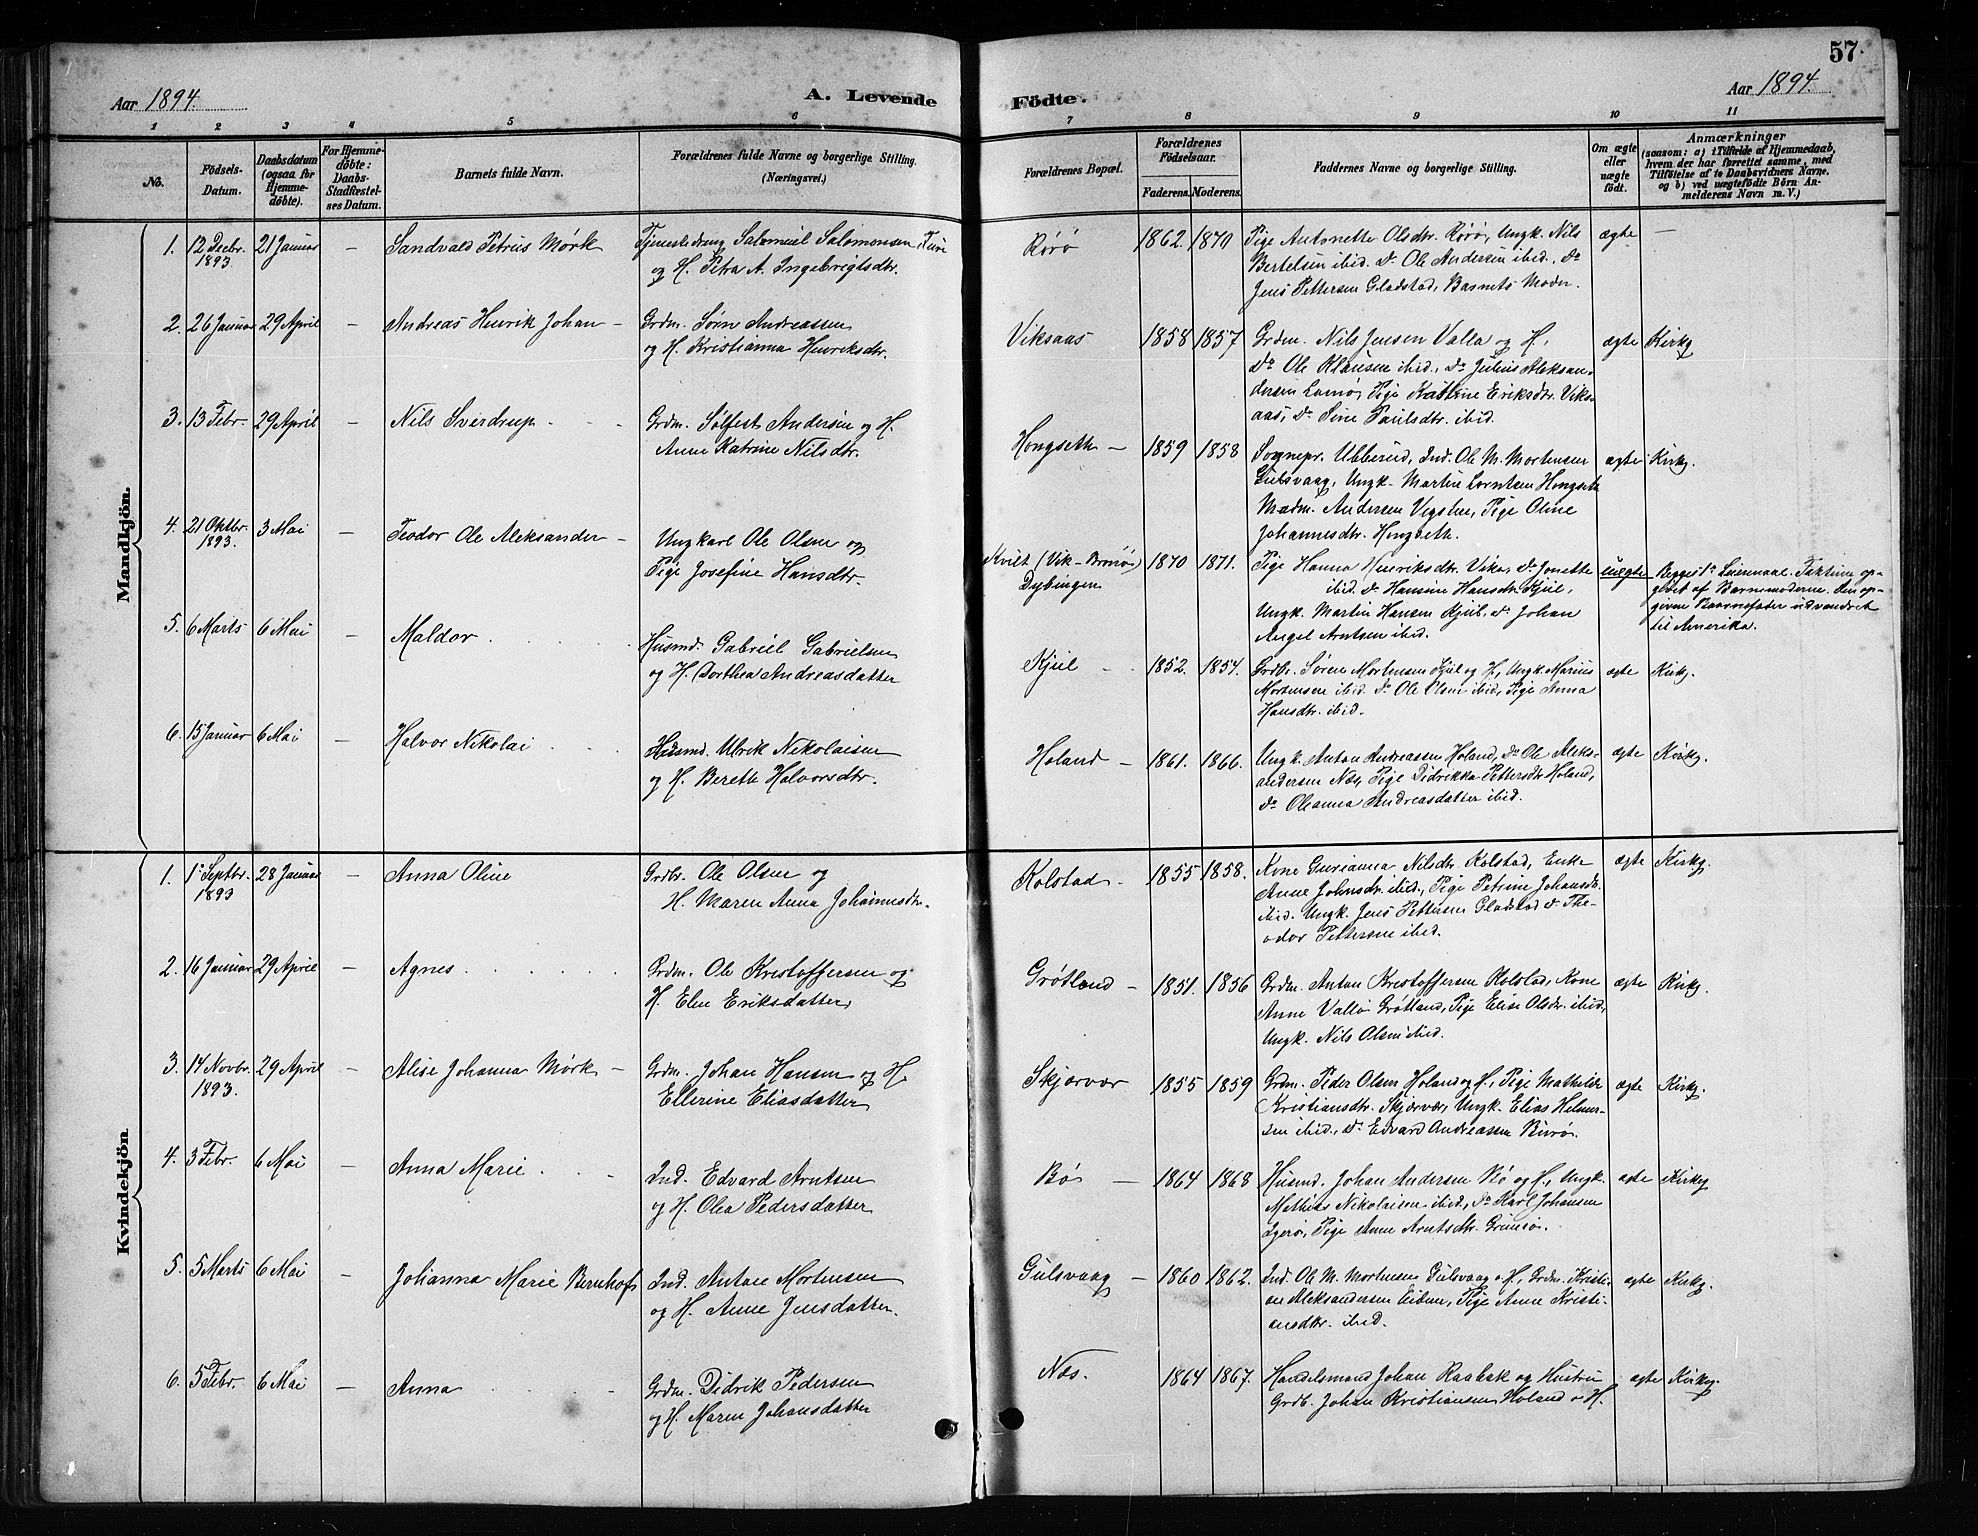 57.
Aar 1894.
A. Levende
Födte.
Aar 1894.
1 2 3 4 5 6 7 8 9 10 11
No.
Födsels-
Datum.
Daabsdatum
(ogsaa for
Hjemme-
døbte).
For Hjemme-
døbte:
Daabs-
Stadfæstel-
ses Datum.
Barnets fulde Navn.
Forældrenes fulde Navne og borgerlige Stilling.
(Næringsvei.)
Forældrenes Bopæl.
Forældrenes
Födselsaar.
Faderens. Moderens.
Faddernes Navne og borgerlige Stilling.
Om ægte
eller
uægte
født.
Anmærkninger
(saasom: a) i Tilfælde af Hjemmedaab,
hvem der har forrettet samme, med
Tilföielse af to Daabsvidners Navne.
og b) ved uægtefödte Börn An-
melderens Navn m. V.)
Mandkjön.
1. 12 Decbr. 1893 21 Januar – Sandvald Petrus Mörk
Tjenestedreng Salomiel Salomonsen,
og H. Petra A. Ingebrigtsdtr.
Rörö 1862. 1870
Pige Antonette Olsdtr. Rörö, Ungk. Nils
Bertelsen ibid. Do Ole Andersen ibid., Do
Jens Pettersen Gladstad, Barnets Moder.
ægte –
2. 26 Januar 29 April – Andreas Henrik Johan –
Grdm. Sörn Andreassen
og H. Kristianna Henriksdtr.
Viksaas 1858 1857
Grdm. Nils Jensen Valla og H,
Do Ole Klausen ibid., Do Julius Aleksan-
dersen Lamö, Pige Katrine Eriksdtr. Vik-
aas, Do Sine Paulsdtr. ibid.
ægte Kirkg
3. 13 Febr. 29 April – Nils Sverdrup
Grdm. Solfest Andersen og H.
Anne Katrine Nilsdtr.
Hongseth – 1859 1858
Sognepr. Ubberud, Ind. Ole M. Mortensen
Gulsvaag, Ungk. Martin Lorntsen Hongseth
Madm. Andersen Vegsten, Pige Oline
Johannesdtr. Hongseth.
ægte Kirkg.
4. 21 Oktbr. 1893. 3 Mai – Teodor Ole Aleksander –
Ungkarl Ole Olsen og
Pige Josefine Hansdtr.
Kvilt (Vik – Brönö)
Dybingen
1870 1871.
Pige Hanna Henriksdtr. Vika, Do Jonette
ibid. Do Hansine Hansdtr. Kjul,
Ungk. Martin Hansen Kjul, Do Johan
Angel Arntsen ibid.
uægte
Begges 1ste Leiermaal. Faktum op-
givet af Barnemoderen. Den op-
givne Barnefader udvandret
til Amerika.
5. 6 Marts 6 Mai – Maldor
Husmd. Gabriel Gabrielsen
og H. Dorthea Andreasdatter
Kjul 1852. 1854.
Grdbr. Sören Mortensen Kjul og H, Ungk. Marius
Mortensen ibid. Do Ole Olsen ibid, Pige Anna
Hansdtr. ibid.
ægte Kirkg.
6. 15 Januar 6 Mai – Halvor Nikolai
Husmd. Ulrik Nikolaisen
og H. Bereth Halvorsdtr.
Holand – 1861. 1866.
Ungk. Anton Andreassen Holand, Do Ole Aleks-
andersen Næs, Pige Didrikka Pettersdtr Holand,
Do Oleanna Andreasdatter ibid.
ægte Kirkg.
Kvindekjön
1. 1. Septbr. 1893 28 Januar – Anna Oline
Grdbr. Ole Olsen og
H. Maren Anna Johannesdtr.
Kolstad – 1855 1858.
Kone Gurianna Nilsdtr. Kolstad, Enke
Anne Johnsdtr. ibid., Pige Petrine Johansdtr.
ibid. Ungk. Jens Pettersen Gladstad Do The-
odor Pettersen ibid.
ægte Kirkg.
2. 16 Januar 29 April – Agnes
Grdm. Ole Kristoffersen og
H. Elen Eriksdatter,
Grötland – 1851. 1856
Grdm. Anton Kristoffersen Kolstad, Kone
Anne Valló Grötland, Pige Elise Olsdtr. ibid,
Ungk. Nils Olsen ibid.
ægte Kirkg.
3. 14 Novbr. 1893. 29 April – Alise Johanna Mörk –
Grdm. Johan Hansen og H.
Ellerine Eliasdatter
Skjærvær 1855 1859
Grdm. Peder Olsen Holand og H, Pige Mathilde
Kristiansdtr. Skjærvær, Ungk. Elias Helmer-
sen ibid., Do Edvard Andreassen Burö.
ægte Kirkg.
4. 3 Febr. 6 Mai – Anna Marie
Ind. Edvard Arntsen
og H. Olea Pedersdatter
Bö – 1864 1868
Husmd. Johan Andersen Bö og H, Ungk.
Mathias Nikolaisen ibid, Do Karl Johansen
Ygerö, Pige Anne Arntsdtr. Grimsö.
ægte Kirkg
5. 5 Marts 6 Mai – Johanna Marie Bernhof
Ind. Anton Mortensen
og H. Anne Jensdatter.
Gulsvaag – 1860 1862.
Ind. Ole M. Mortensen Gulsvaag o H, Grdm. Kristi-
an Aleksandersen Eiben, Pige Anne Kristi-
ansdtr. ibid.
ægte Kirkg.
6. 5 Febr. 6 Mai – Anna
Grdm. Didrik Pedersen
og H. Maren Johansdatter
Næs. 1864 1867.
Handelsmand Johan Raabak og Hustru
Grdb. Johan Kristiansen Holand o H.
ægte Kirkg.